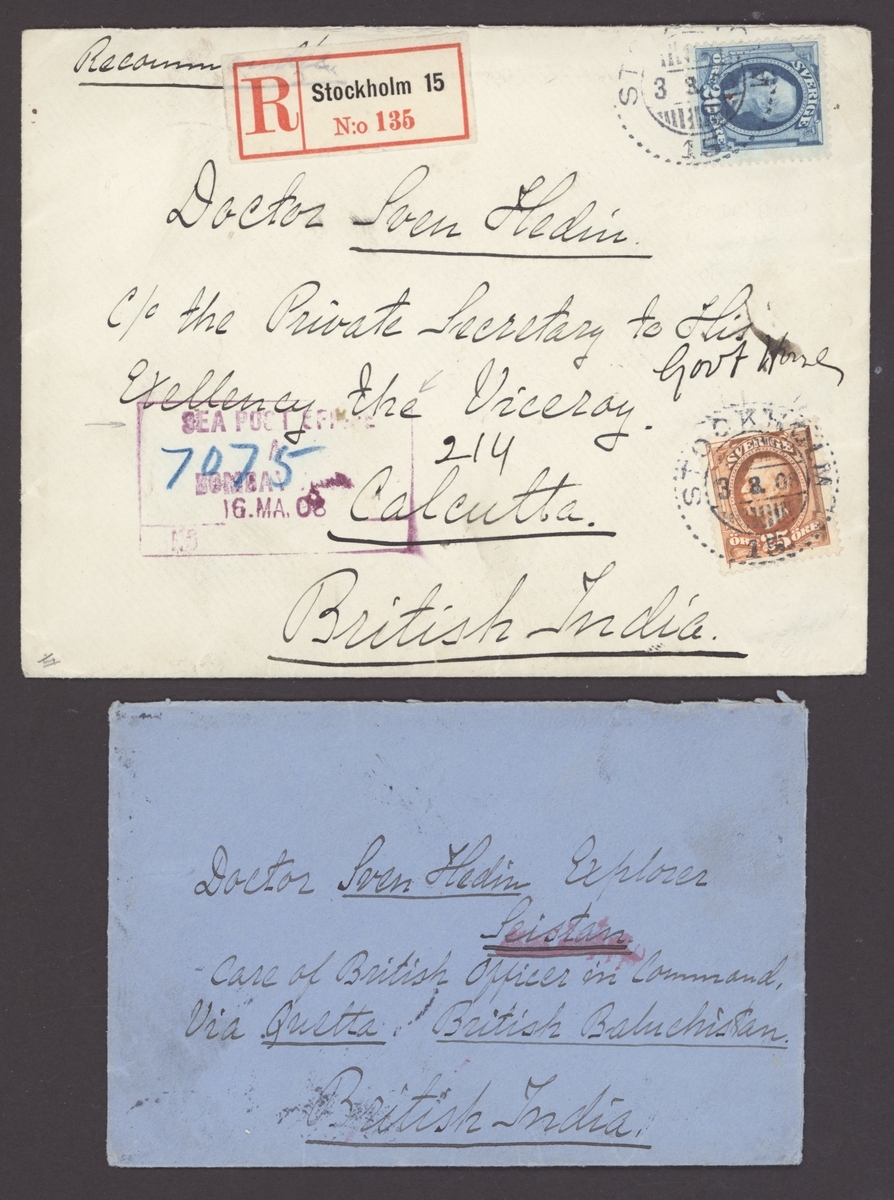 Recomm
R Stockholm 15
N:o 135
SVERIGE
3 8
15
Doctor Sven Hedin.
c/o the Private Secretary to His
Exellency the Viceroy.
Govt House
SEA POST OFFICE
7075
BOMBAY
16.MA.08
No
214
Calcutta.
STOCKHOLM
SVERIGE
3 8. 08
ÖRE 25 ÖRE
15
British India.
Doctor Sven Hedin Explorer
Seistan.
Care of British Officer in Command.
Via Quetta. British Baluchistan.
British India.